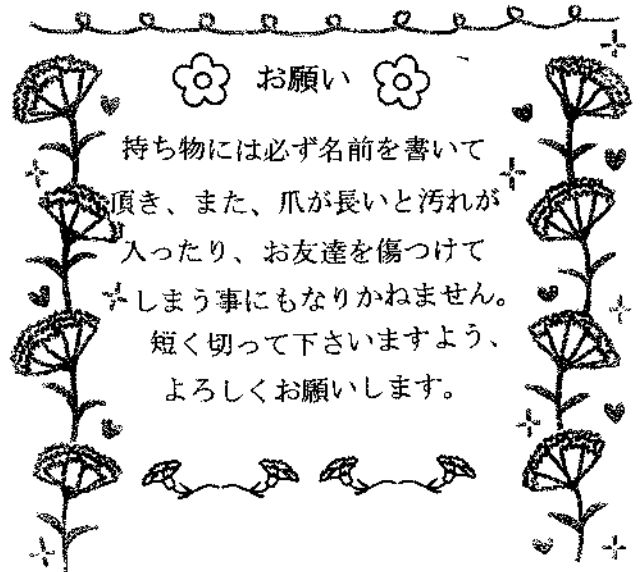 お願い
持ち物には必ず名前を書いて
頂き、また、爪が長いと汚れが
入ったり、お友達を傷つけて
しまう事にもなりかねません。
短く切って下さいますよう、
よろしくお願いします。